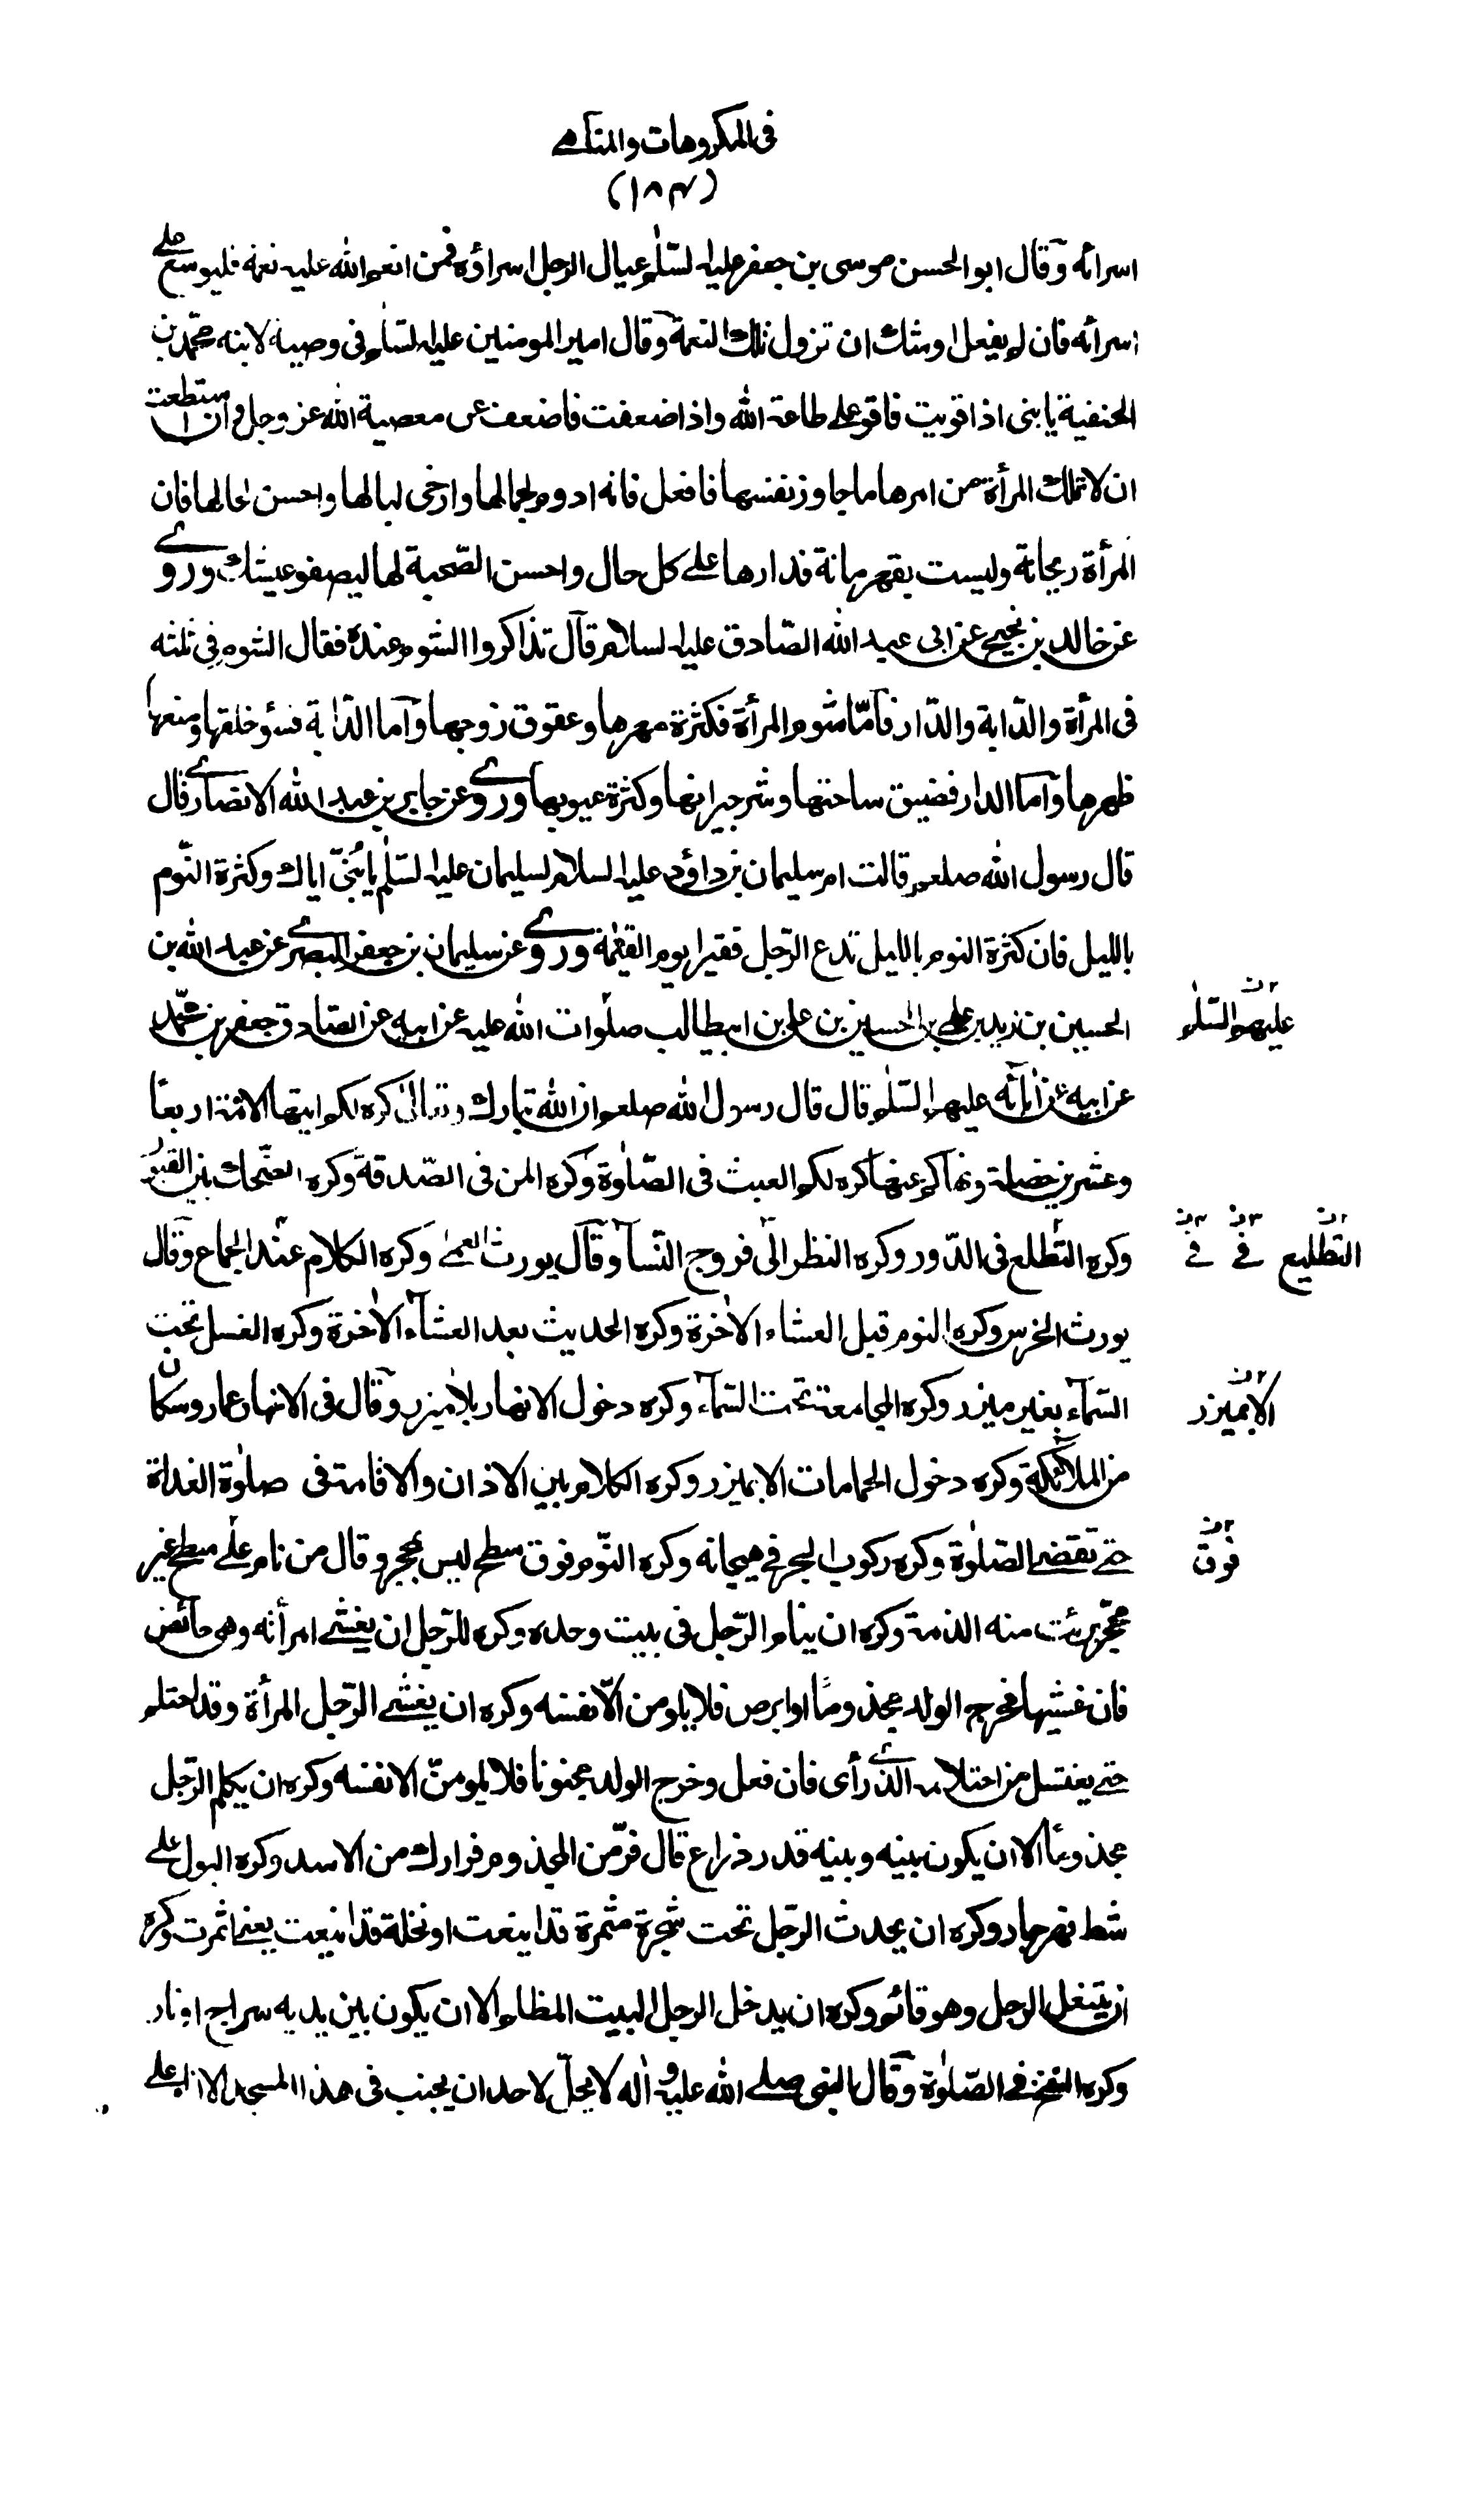 فى المكروهات والمناهے
(١٨٣)
اسرائه وقال ابو الحسن موسى بن جعفر عليه السّلٰم عيال الرجل اسراؤه فمن انعم الله عليه نعمة فليوسع على
اسرائه فان لم يفعل اوشك ان تزول تلك النعمة وقال امير المومنين عليه السّلٰم فى وصيته لابنه محمّد بن
الحنفية يا بنى اذا قويت فاقو على طاعة الله واذا ضعفت فاضعف عن معصية الله عز وجل وان استطعت
ان لا تملك المرأة من امرها ما جاوز نفسها فافعل فانه ادوم لجمالها وارخى لبالها واحسن لحالها فان
المرأة ريحانة وليست بقهرمانة فدارها على كل حال واحسن الصّحبة لها ليصفو عيشك وروے
عن خالد بن نجيح عن ابى عبد الله الصّادق عليه السلام قال تذاكروا الشوم عنده فقال الشوم فى ثلثه
فى المرأة والدّابة والدّار فامّا شوم المرأة فكثرة مهرها وعقوق زوجها واما الدّابة فسؤ خلقها ومنعها
ظهرها واما الدار فضيق ساحتها وشر جيرانها وكثرة عيوبها وروے عن جابر بن عبد الله الانصارے قال
قال رسول الله صلعم قالت ام سليمان بن داؤد عليه السلام لسليمان عليه السّلٰم يا بُنىّ اياك وكثرة النّوم
بالليل فان كثرة النوم بالليل تدع الرّجل فقيرا يوم القيٰمة وروے عن سليمان بن جعفر البصرے عن عبد الله بن
الحسين بن زيد بن على بن الحسين بن على بن ابيطالب صلوات الله عليه عن ابيه عن الصادق جعفر بن محمّد
عليهم السّلٰم
عن ابيه عن اٰبائه عليهم السّلٰم قال قال رسول الله صلعم ان الله تبارك وتعالىٰ كره لكم ايتها الامة اربعا
وعشرين خصلة ونهاكم عنها كره لكم العبث فى الصّلوٰة وكره المن فى الصّدقة وكره الضّحك بين القبور
وكره التطّلع فى الدّور وكره النظر الى فروج النّسآء وقال يورث العمىٰ وكره الكلام عند الجماع وقال
التطليع فى فى
يورث الخرس وكره النوم قبل العشاء الاٰخرة وكره الحديث بعد العشآء الاٰخرة وكره الغسل تحت
السّمآء بغير ميزر وكره المجامعة تحت السّمآء وكره دخول الانهار بلا ميزر وقال فى الانهار عمار وسكان
الا بميزر
من الملائكة وكره دخول الحمامات الا بميزر وكره الكلام بين الاذان والاقامة فى صلوٰة الغداة
حتى تقضى الصّلوٰة وكره ركوب البحر فى هيجانه وكره النّوم فوق سطح ليس بمحجر وقال من نام على سطح غير
فوق
محجّر برئت منه الذمة وكره ان ينام الرّجل فى بيت وحده وكره للرّجل ان يغشى امرأته وهى حائض
فان غشيها فخرج الولد مجذوما او ابرص فلا يلومن الّا نفسه وكره ان يغشى الرّجل المرأة وقد احتلم
حتى يغتسل من احتلامه الذى رأى فان فعل وخرج الولد مجنونا فلا يلومنّ الا نفسه وكره ان يكلم الرّجل
مجذوما الا ان يكون بينه وبينه قدر ذراع قال فرّ من المجذوم فرارك من الاسد وكره البول على
شط نهر جار وكره ان يحدث الرّجل تحت شجرة مثمرة قد اينعت او نخلة قد اينعت يعنى اثمرت وكره
ان يتنعل الرجل وهو قائم وكره ان يدخل الرجل البيت المظلم الا ان يكون بين يديه سراج او نار
وكره النفخ فى الصّلوٰة وقال النبى صلے الله عليه واٰله لا يحلّ لاحد ان يجنب فى هذا المسجد الا انا وعلى